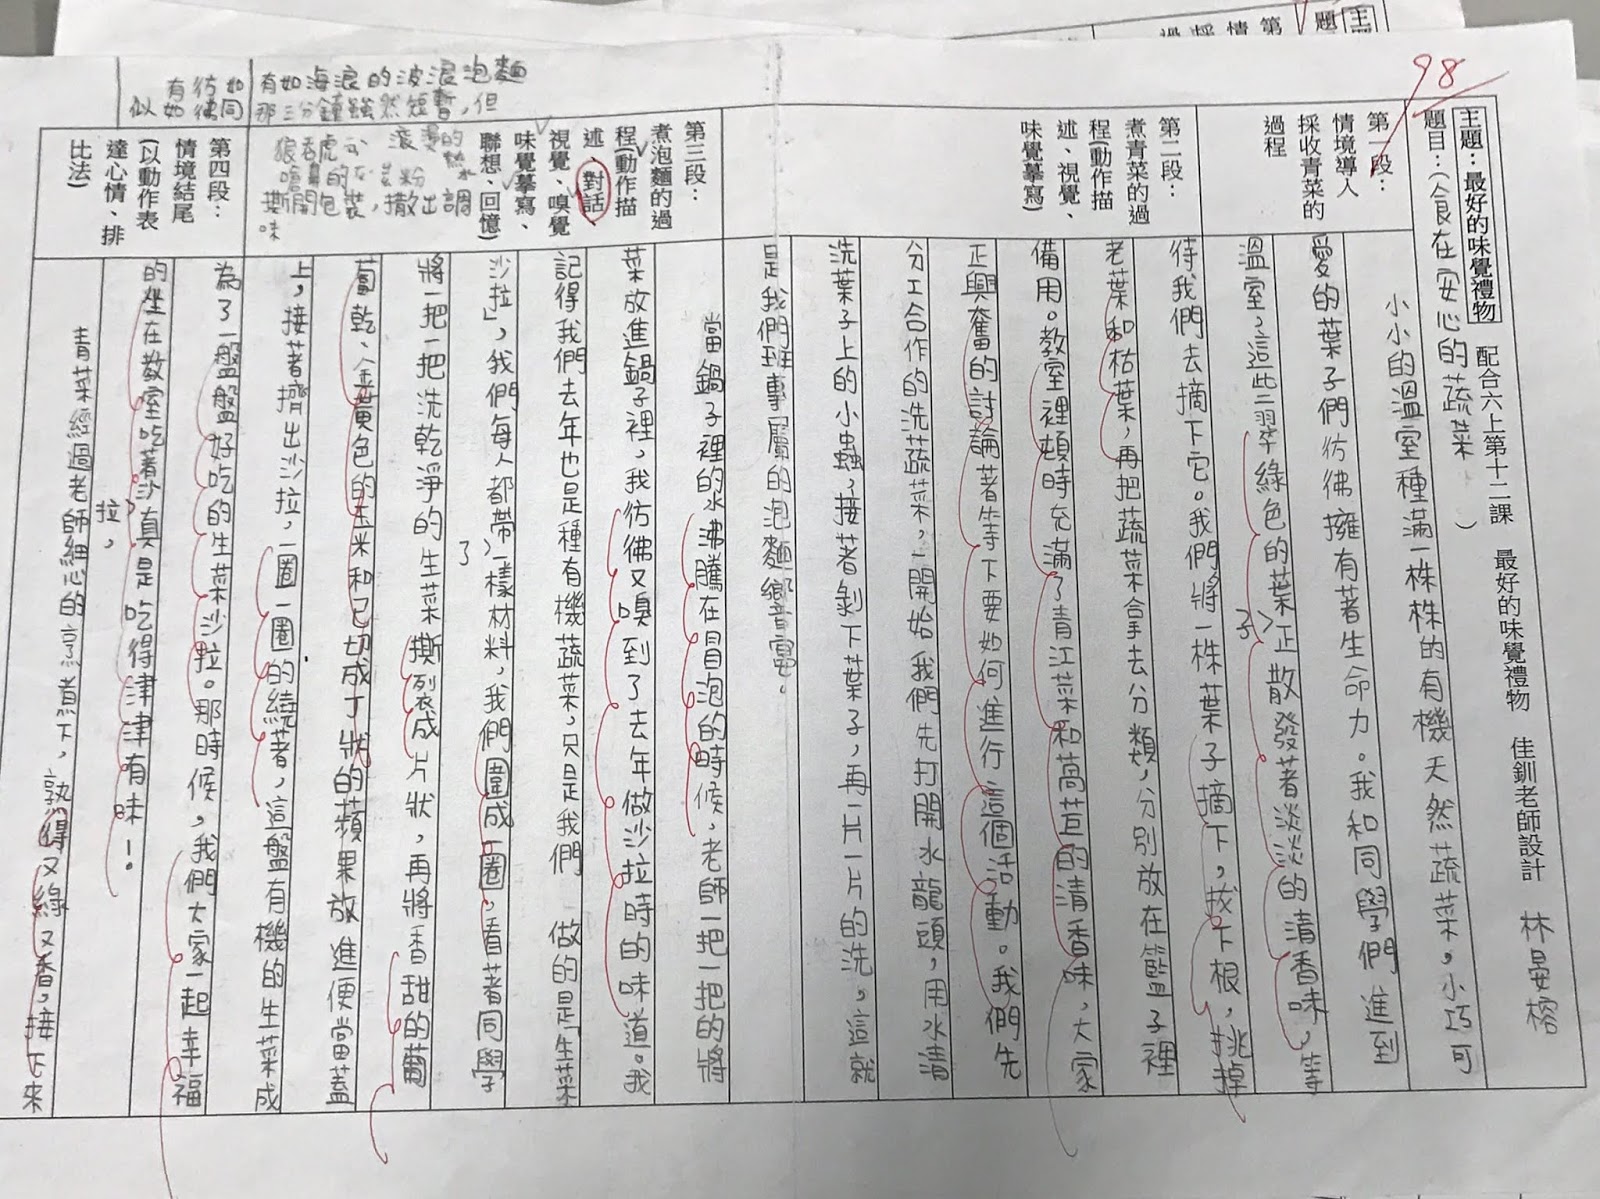 98
主題：最好的味覺禮物 配合六上第十二課 最好的味覺禮物 佳釧老師設計 林晏榕
題目：（食在安心的蔬菜）
第一段：
情境導入
採收青菜的
過程
小小的溫室種滿一株株的有機天然蔬菜，小巧可
愛的葉子們彷彿擁有著生命力。我和同學們進到
溫室，這些翠綠色的葉子正散發著淡淡的清香味，等
待我們去摘下它。我們將一株葉子摘下，拔下根，挑掉
第二段：
煮青菜的過
程(動作描
述、視覺、
味覺摹寫)
老葉和枯葉，再把蔬菜拿去分類，分別放在籃子裡
備用。教室裡頓時充滿了青江菜和萵苣的清香味，大家
正興奮的討論著等下要如何進行這個活動。我們先
分工合作的洗蔬菜，一開始我們先打開水龍頭，用水清
洗葉子上的小蟲，接著剝下葉子，再一片一片的洗，這就
是我們班專屬的泡麵饗宴。
第三段：
煮泡麵的過
程(動作描
述、對話
視覺、嗅覺
味覺摹寫、
聯想、回憶)
有如海浪的波浪泡麵
那三分鐘雖然短暫，但
滾燙的熱水
狼吞虎
嗆鼻的
撕開包裝，撒出調
味
當鍋子裡的水沸騰在冒泡的時候，老師一把一把的將
菜放進鍋子裡，我彷彿又嗅到了去年做沙拉時的味道。我
記得我們去年也是種有機蔬菜，只是我們 做的是「生菜
沙拉」，我們每人都帶了一樣材料，我們圍成一圈，看著同學
將一把一把洗乾淨的生菜撕裂成片狀，再將香甜的葡
萄乾、金黃色的玉米和已切成丁狀的蘋果放進便當蓋
上，接著擠出沙拉，一圈一圈的繞著，這盤有機的生菜成
為了一盤盤好吃的生菜沙拉。那時候，我們大家一起幸福
的坐在教室吃著沙拉，真是吃得津津有味！
第四段：
情境結尾
(以動作表
達心情、排
比法)
如同
彷彿
有如
似
青菜經過老師細心的烹煮下，熟得又綠又香，接下來